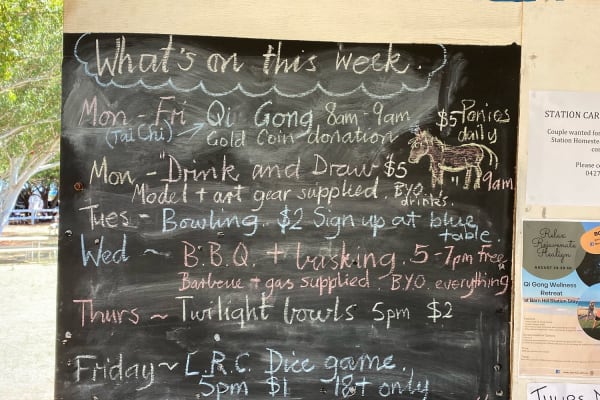 What's on this week.
Mon - Fri Qi Gong 8am - 9am
(Tai Chi) Gold Coin donation
$5 Ponies
daily
9am
Mon - "Drink and Draw - $5
Model + art gear supplied. BYO.
drinks.
Tues - Bowling. $2 Sign up at blue
table.
Wed ~ B.B.Q. + busking. 5-7pm Free
Barbecue + gas supplied. BYO. everything
Thurs ~ Twilight bowls 5pm $2
Friday ~ L.R.C. Dice game.
5pm $1 18+ only
STATION CAR
Couple wanted fo
Station Homeste
Please c
0427
Relax
Rejuvenate
Realign
Qi Gong Wellness
Retreat
at Barn Hill Station Stay